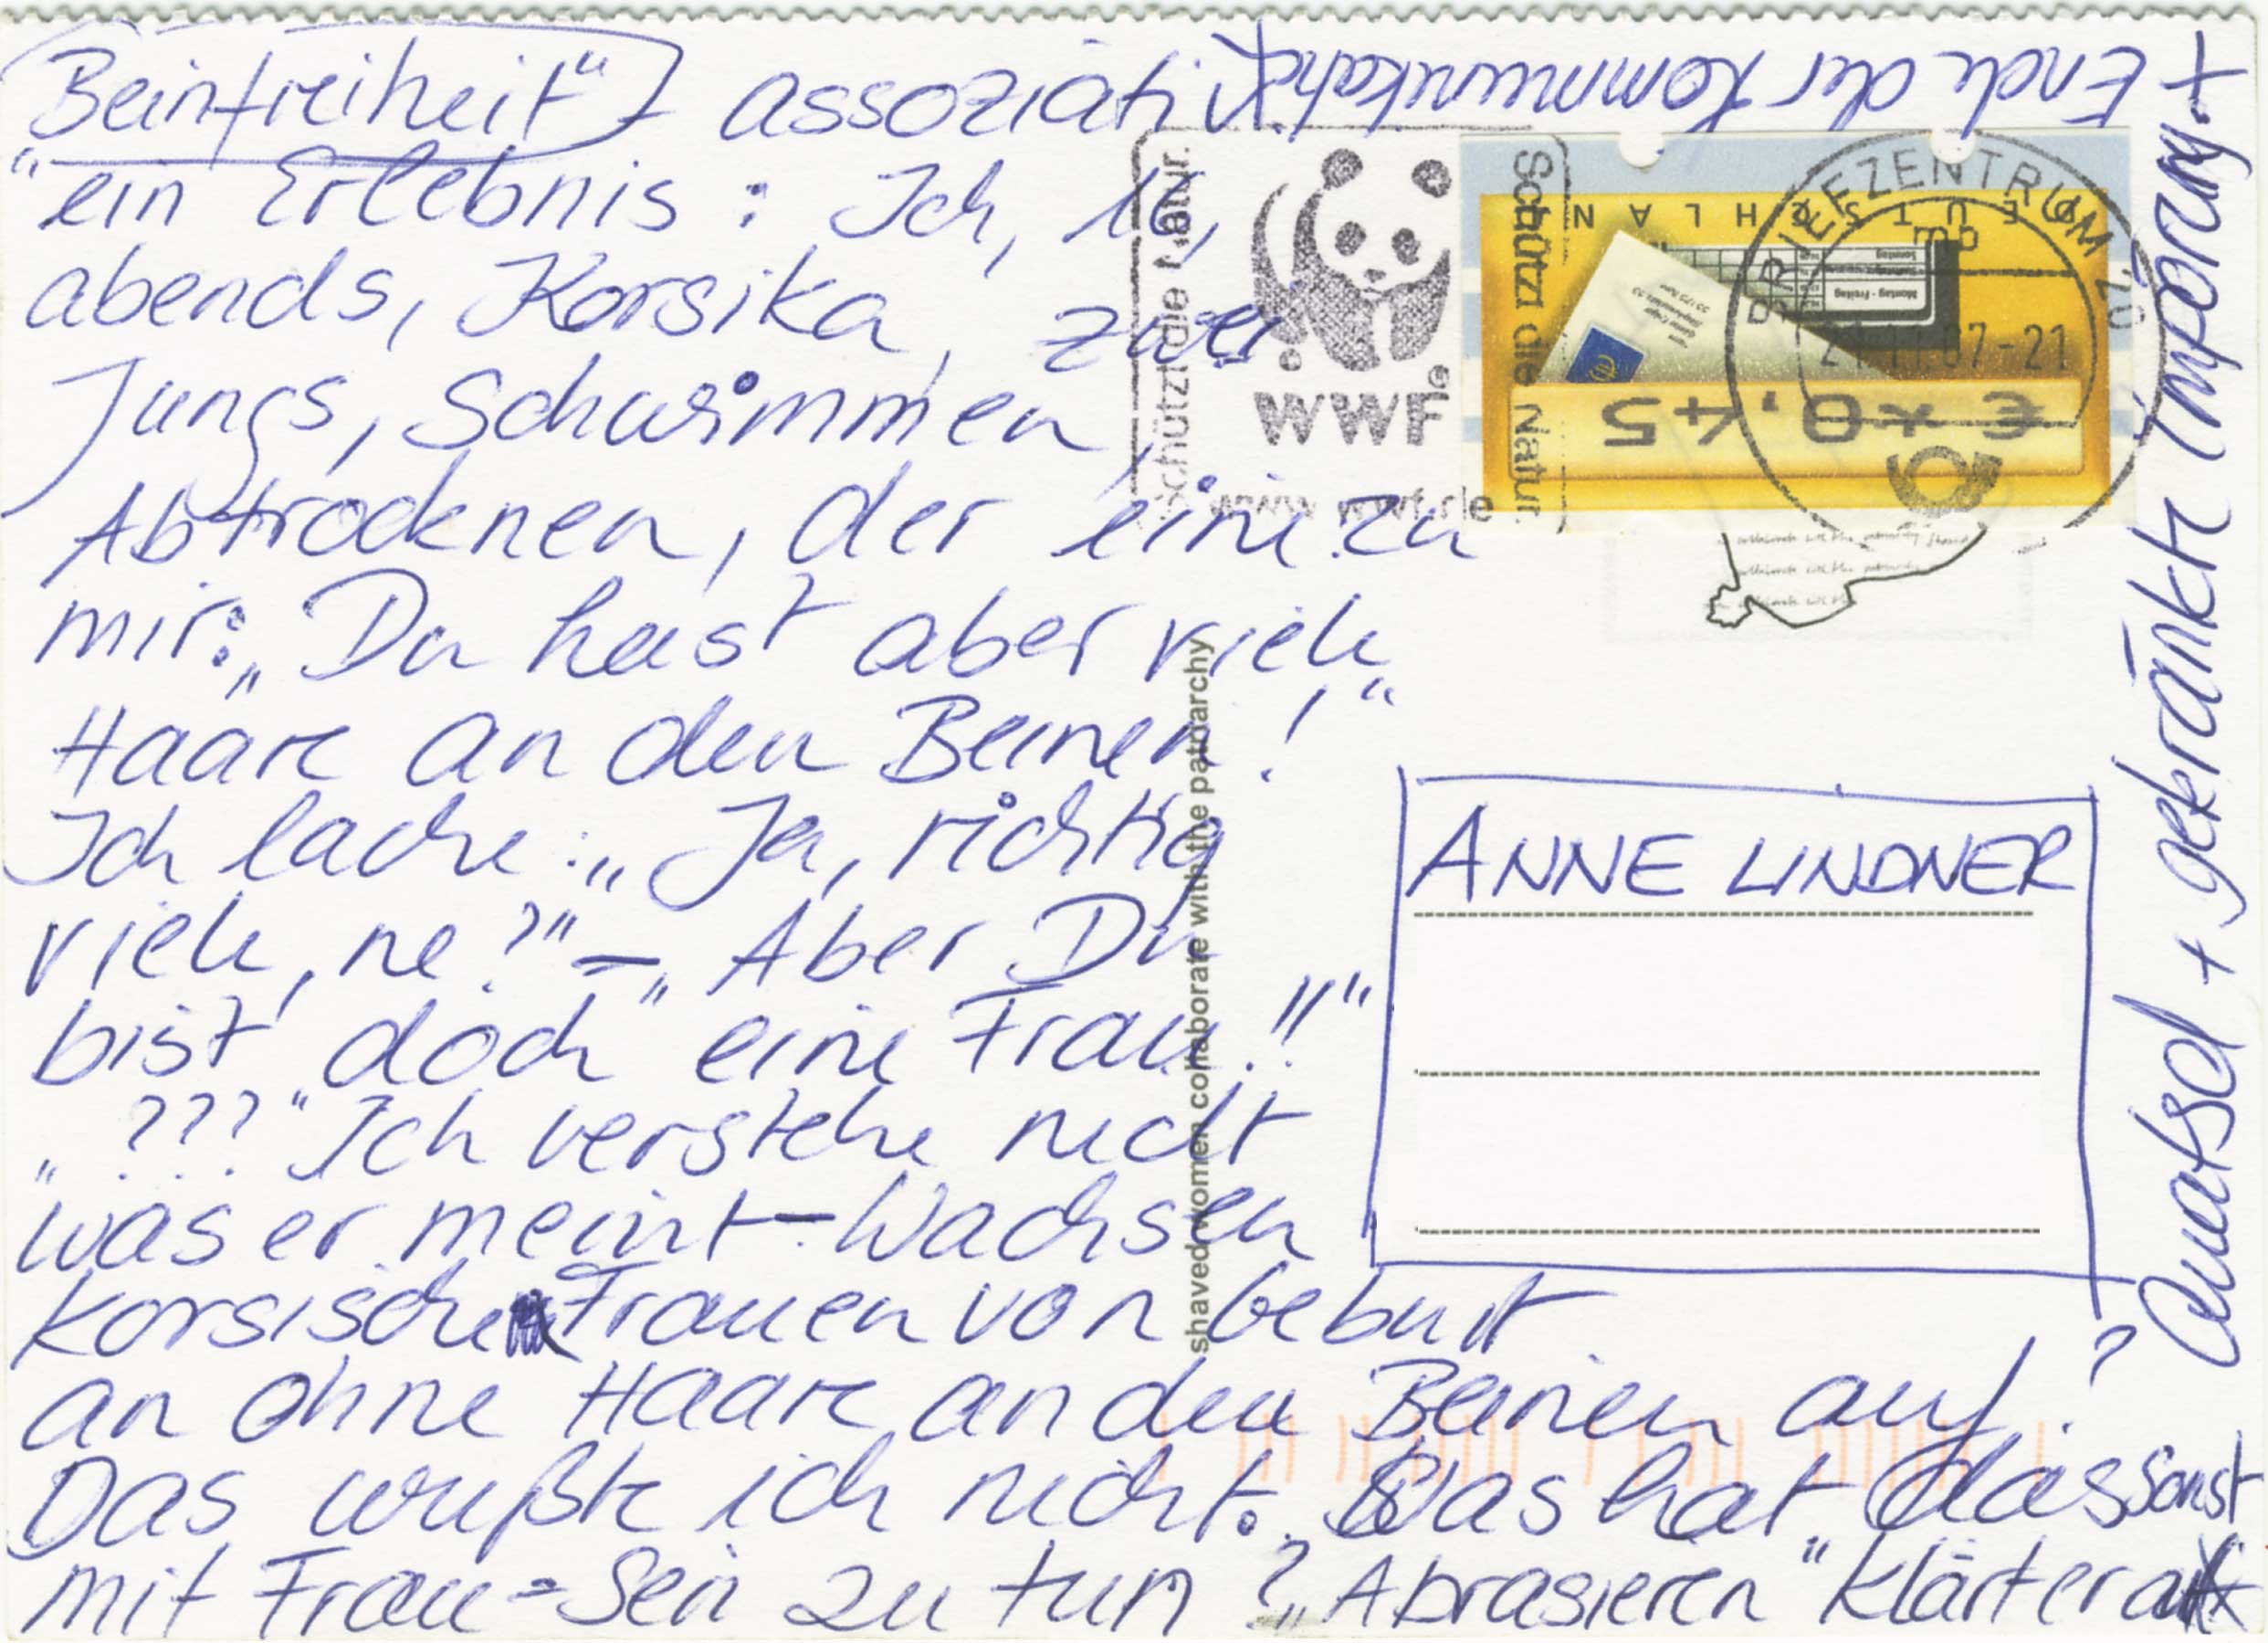 „Beinfreiheit“ – assoziativ
ein Erlebnis: Ich, 16,
abends, Korsika, zwei
Jungs, Schwimmen,
Abtrocknen, der eine zu
mir: „Du hast aber viele
Haare an den Beinen!“
Ich lache: „Ja, richtig
viele, ne?“ – „Aber Du
bist doch eine Frau!!“
„???“ Ich verstehe nicht
was er meint – Wachsen
korsische Frauen von Geburt
an ohne Haare an den Beinen auf?
Das wußte ich nicht. Was hat das sonst
mit Frau=Sein zu tun? „Abrasieren“ klärt er auf.
Quatsch + gekränkte Empörung. +
Ende der Kommunikation.
Schützt die Natur.
WWF®
www.wwf.de
Schützt die Natur.
BRIEFZENTRUM 20
mb
21.11.07-21
DEUTSCHLAND
Montag - Freitag
Sonntag
€*0,45
shaved women collaborate with the patriarchy
ANNE LINDNER